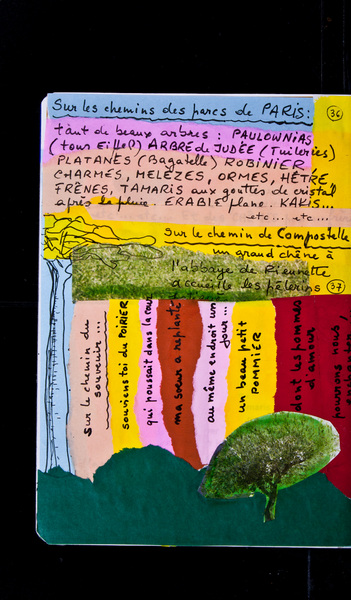 Sur les chemins des parcs de PARIS:
36
tant de beaux arbres : PAULOWNIAS
(tour Eiffel) ARBRE de JUDÉE (Tuileries)
PLATANES (Bagatelle) ROBINIER
CHARMES, MELEZES, ORMES, HÊTRE
FRÊNES, TAMARIS aux gouttes de cristal
après la pluie. ERABLE plane. KAKIS...
etc... etc...
Sur le chemin de Compostelle
un grand chêne à
l'abbaye de Rieunette
accueille les pèlerins
37
Sur le chemin du
souvenir...
souviens toi du POIRIER
qui poussait dans la cour
ma sœur a replanté
au même endroit un
jour...
un beau petit
POMMIER
dont les pommes
d'amour
pourrons nous